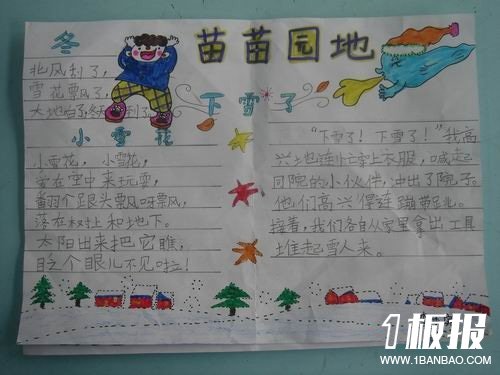 苗苗园地
冬
北风刮了，
雪花飘了，
大地白了，冬天到了。
小雪花
小雪花，小雪花，
爱在空中来玩耍，
翻个跟头飘呀飘，
落在树上和地下。
太阳出来把它瞧，
眨个眼儿不见啦！
下雪了
“下雪了！下雪了！”我高
兴地连忙穿上衣服，喊起
同院的小伙伴，冲出了院子。
他们高兴得连蹦带跳。
接着，我们各自从家里拿出工具
堆起雪人来。
1板报
WWW.1BANBAO.COM